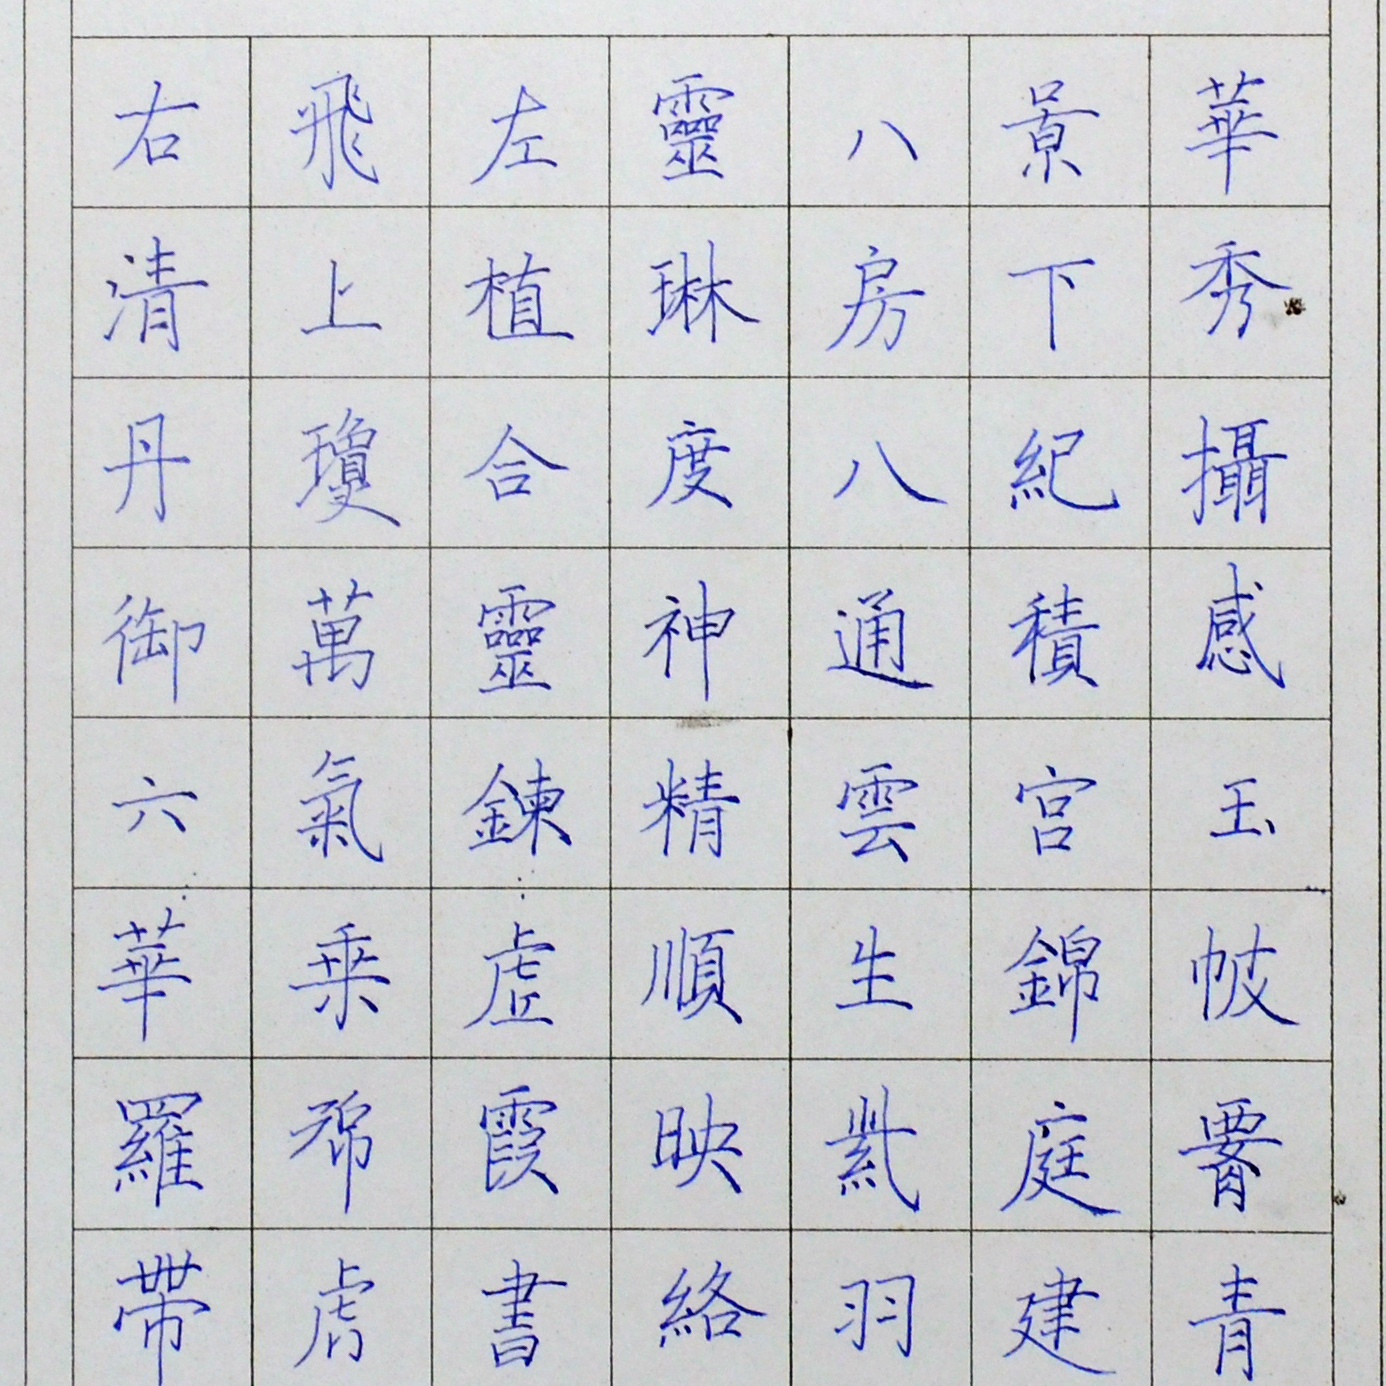 華秀攝感玉帔青
景下紀積宮錦庭建
八房八通雲生紫羽
靈琳度神精順映絡
左植合靈鍊虛霞書
飛上瓊萬氣乘虎
右清丹御六華羅帶